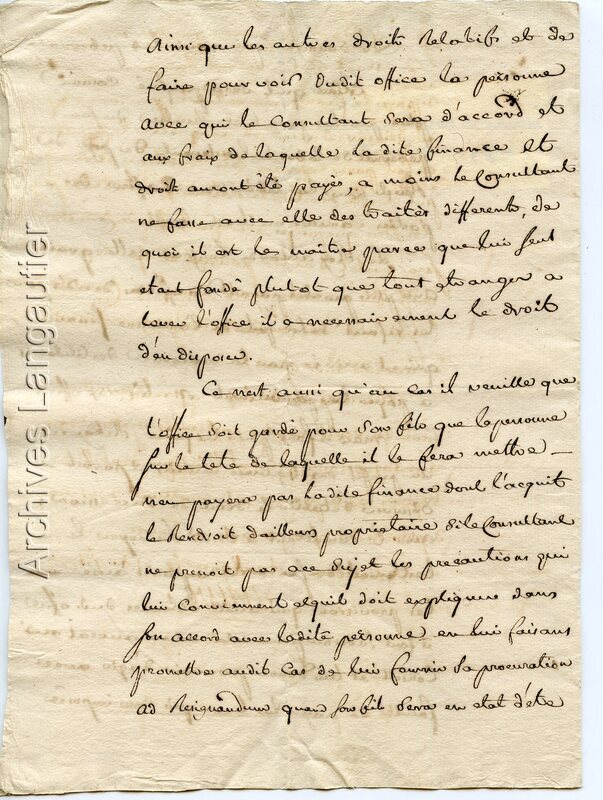 Ainsi que les autres droits relatifs et de
faire pourvoir dudit office la personne
avec qui le Consultant sera d'accord et
aux fraix de laquelle ladite finance et
droits auront été payés, a moins le Consultant
ne fasse avec elle des traités differents, de
quoi il est le maitre parce que lui seul
etant fondé plutot que tout etranger a
lever l'office il a necessairement le droit
d'en disposer.
Ce n'est aussi qu'en cas il veuille que
l'office soit gardé pour son fils que la personne
sur la tete de laquelle il le fera mettre
n'en payera pas ladite finance dont l'acquit
le Rendroit d'ailleurs proprietaire si le Consultant
ne prenoit pas a ce sujet les precautions qui
lui Conviennent et qu'il doit expliquer dans
son accord avec ladite personne en lui faisant
promettre audit Cas de lui fournir sa procuration
ad Resignandum quand son fils sera en etat d'être
Archives Langautier